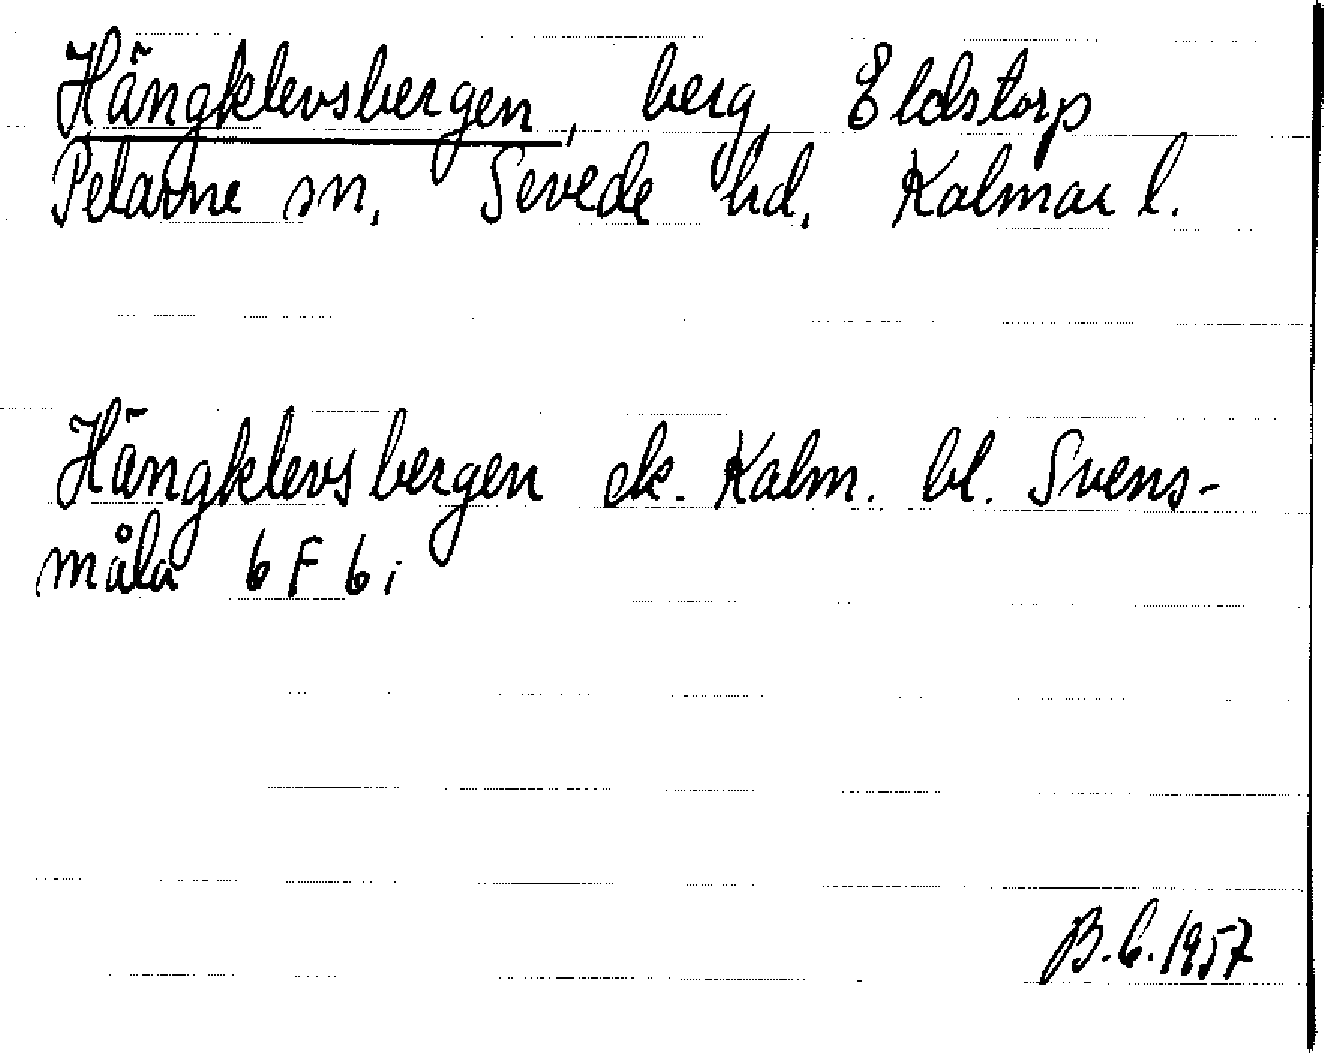 Hängklevsbergen, berg, Eldstorp
Pelarne sn. Sevede hd. Kalmar l.
Hängklevsbergen ek. Kalm. bl. Svens-
måla 6 F 6 i
B.C. 1957